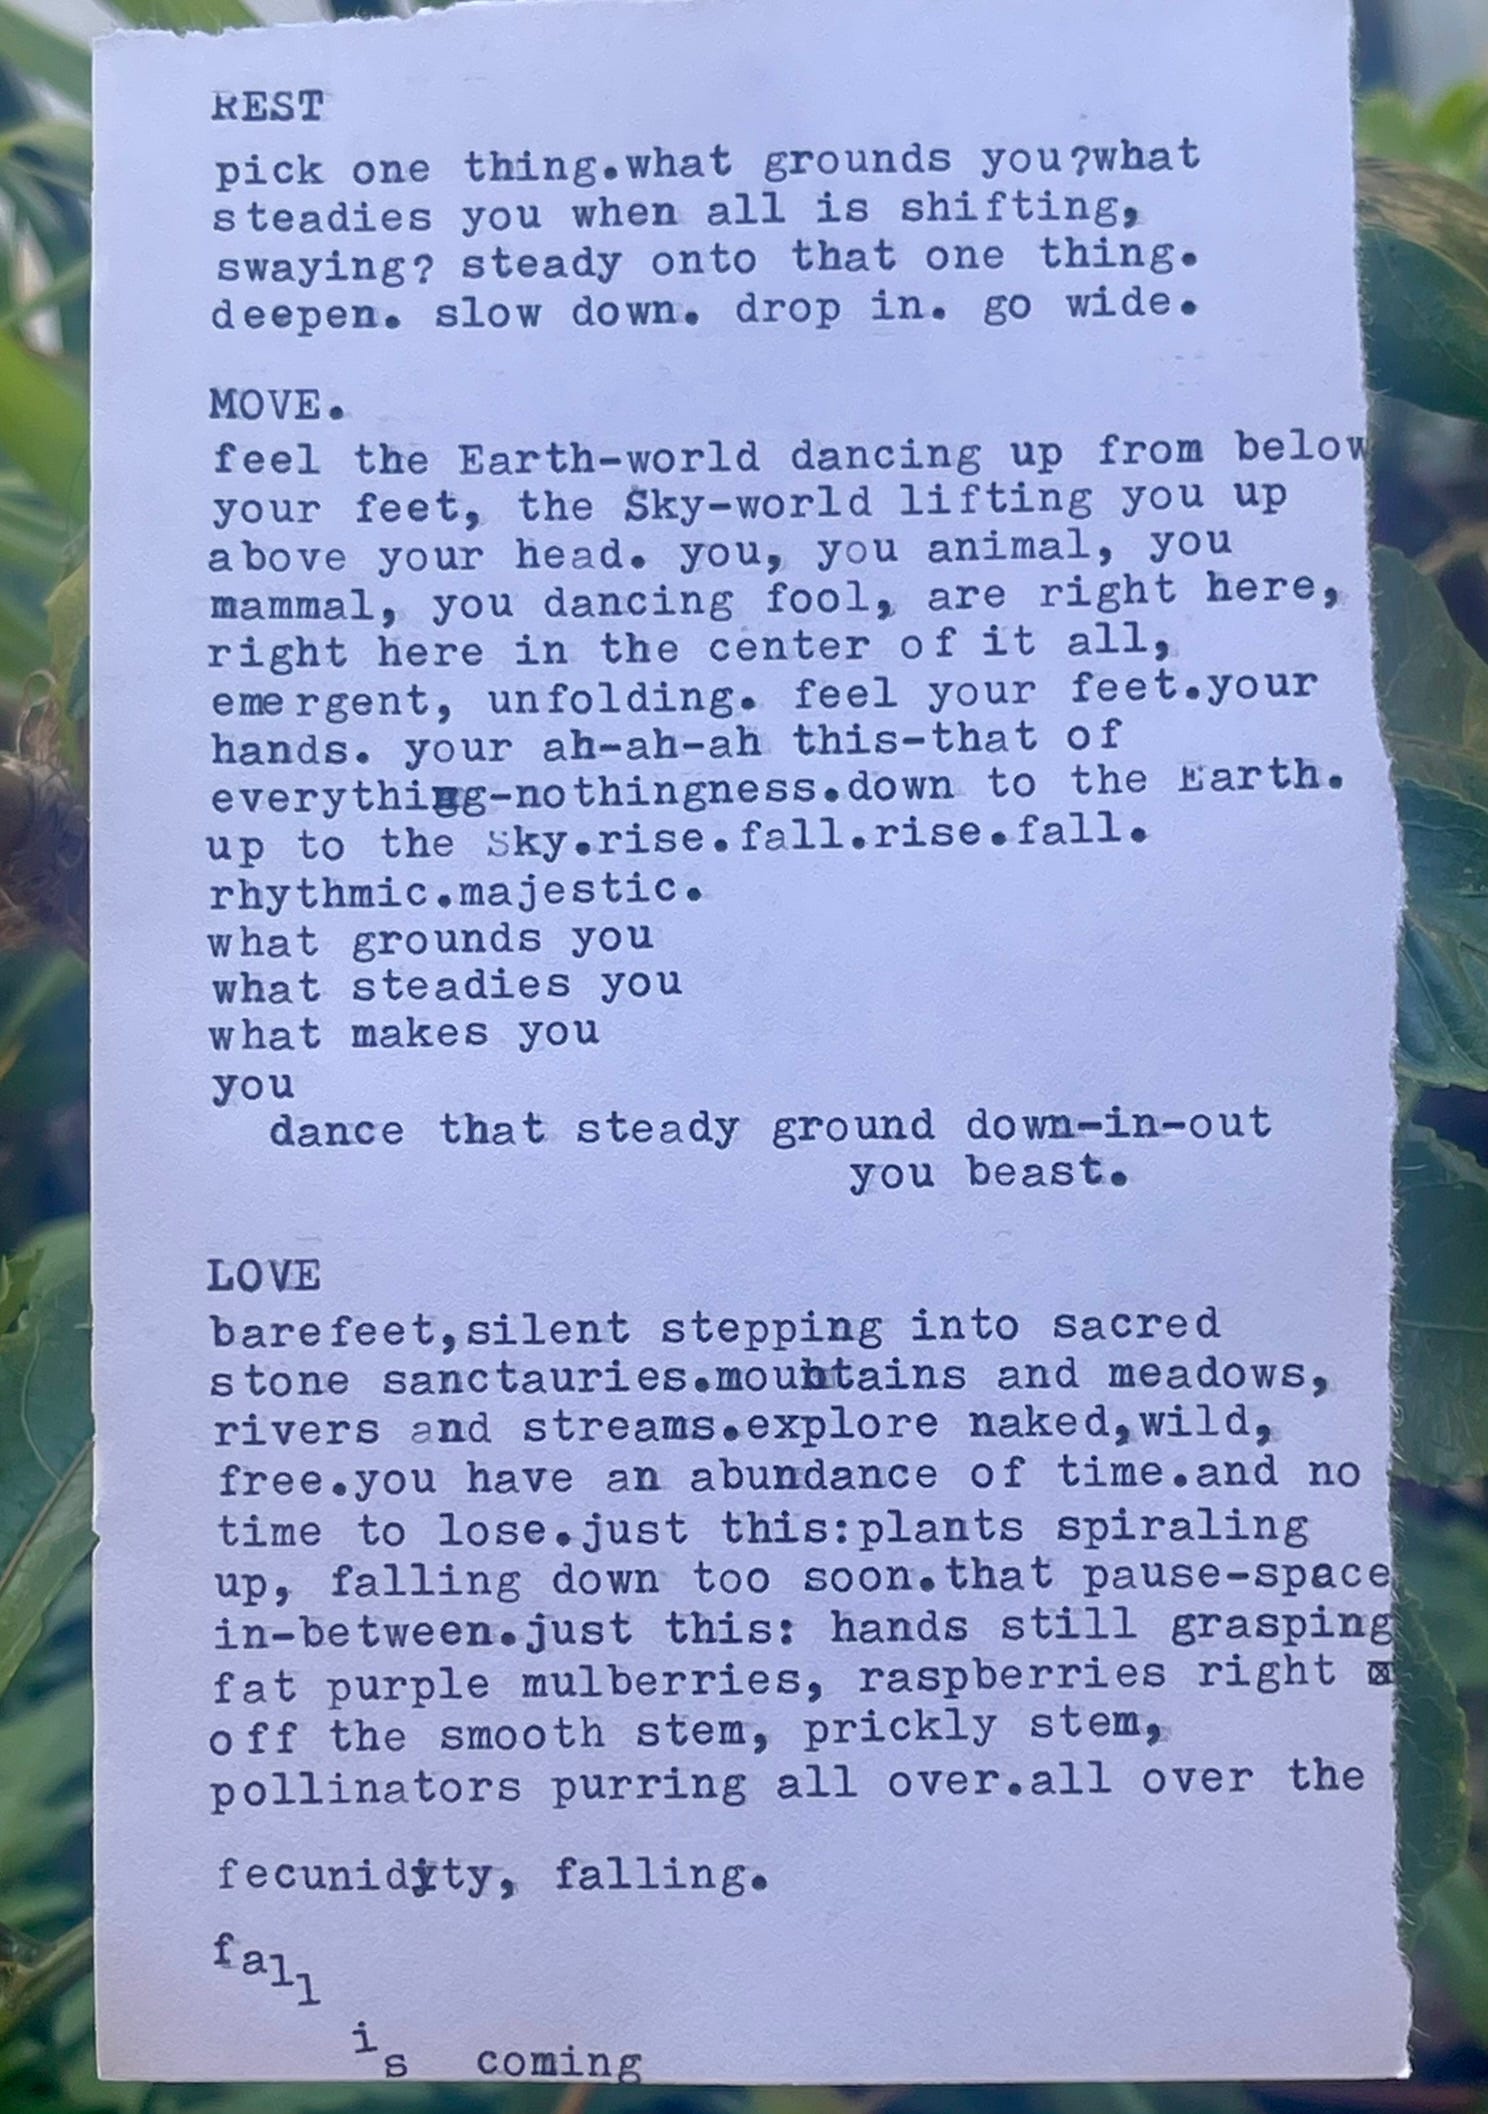 REST
pick one thing.what grounds you?what
steadies you when all is shifting,
swaying? steady onto that one thing.
deepen. slow down. drop in. go wide.
MOVE.
feel the Earth-world dancing up from below
your feet, the Sky-world lifting you up
above your head. you, you animal, you
mammal, you dancing fool, are right here,
right here in the center of it all,
emergent, unfolding. feel your feet.your
hands. your ah-ah-ah this-that of
everything-nothingness.down to the Earth.
up to the Sky.rise.fall.rise.fall.
rhythmic.majestic.
what grounds you
what steadies you
what makes you
you
dance that steady ground down-in-out
you beast.
LOVE
barefeet,silent stepping into sacred
stone sanctauries.mountains and meadows,
rivers and streams.explore naked,wild,
free.you have an abundance of time.and no
time to lose.just this:plants spiraling
up, falling down too soon.that pause-space
in-between.just this: hands still grasping
fat purple mulberries, raspberries right
off the smooth stem, prickly stem,
pollinators purring all over.all over the
fecunidity, falling.
fall
is coming